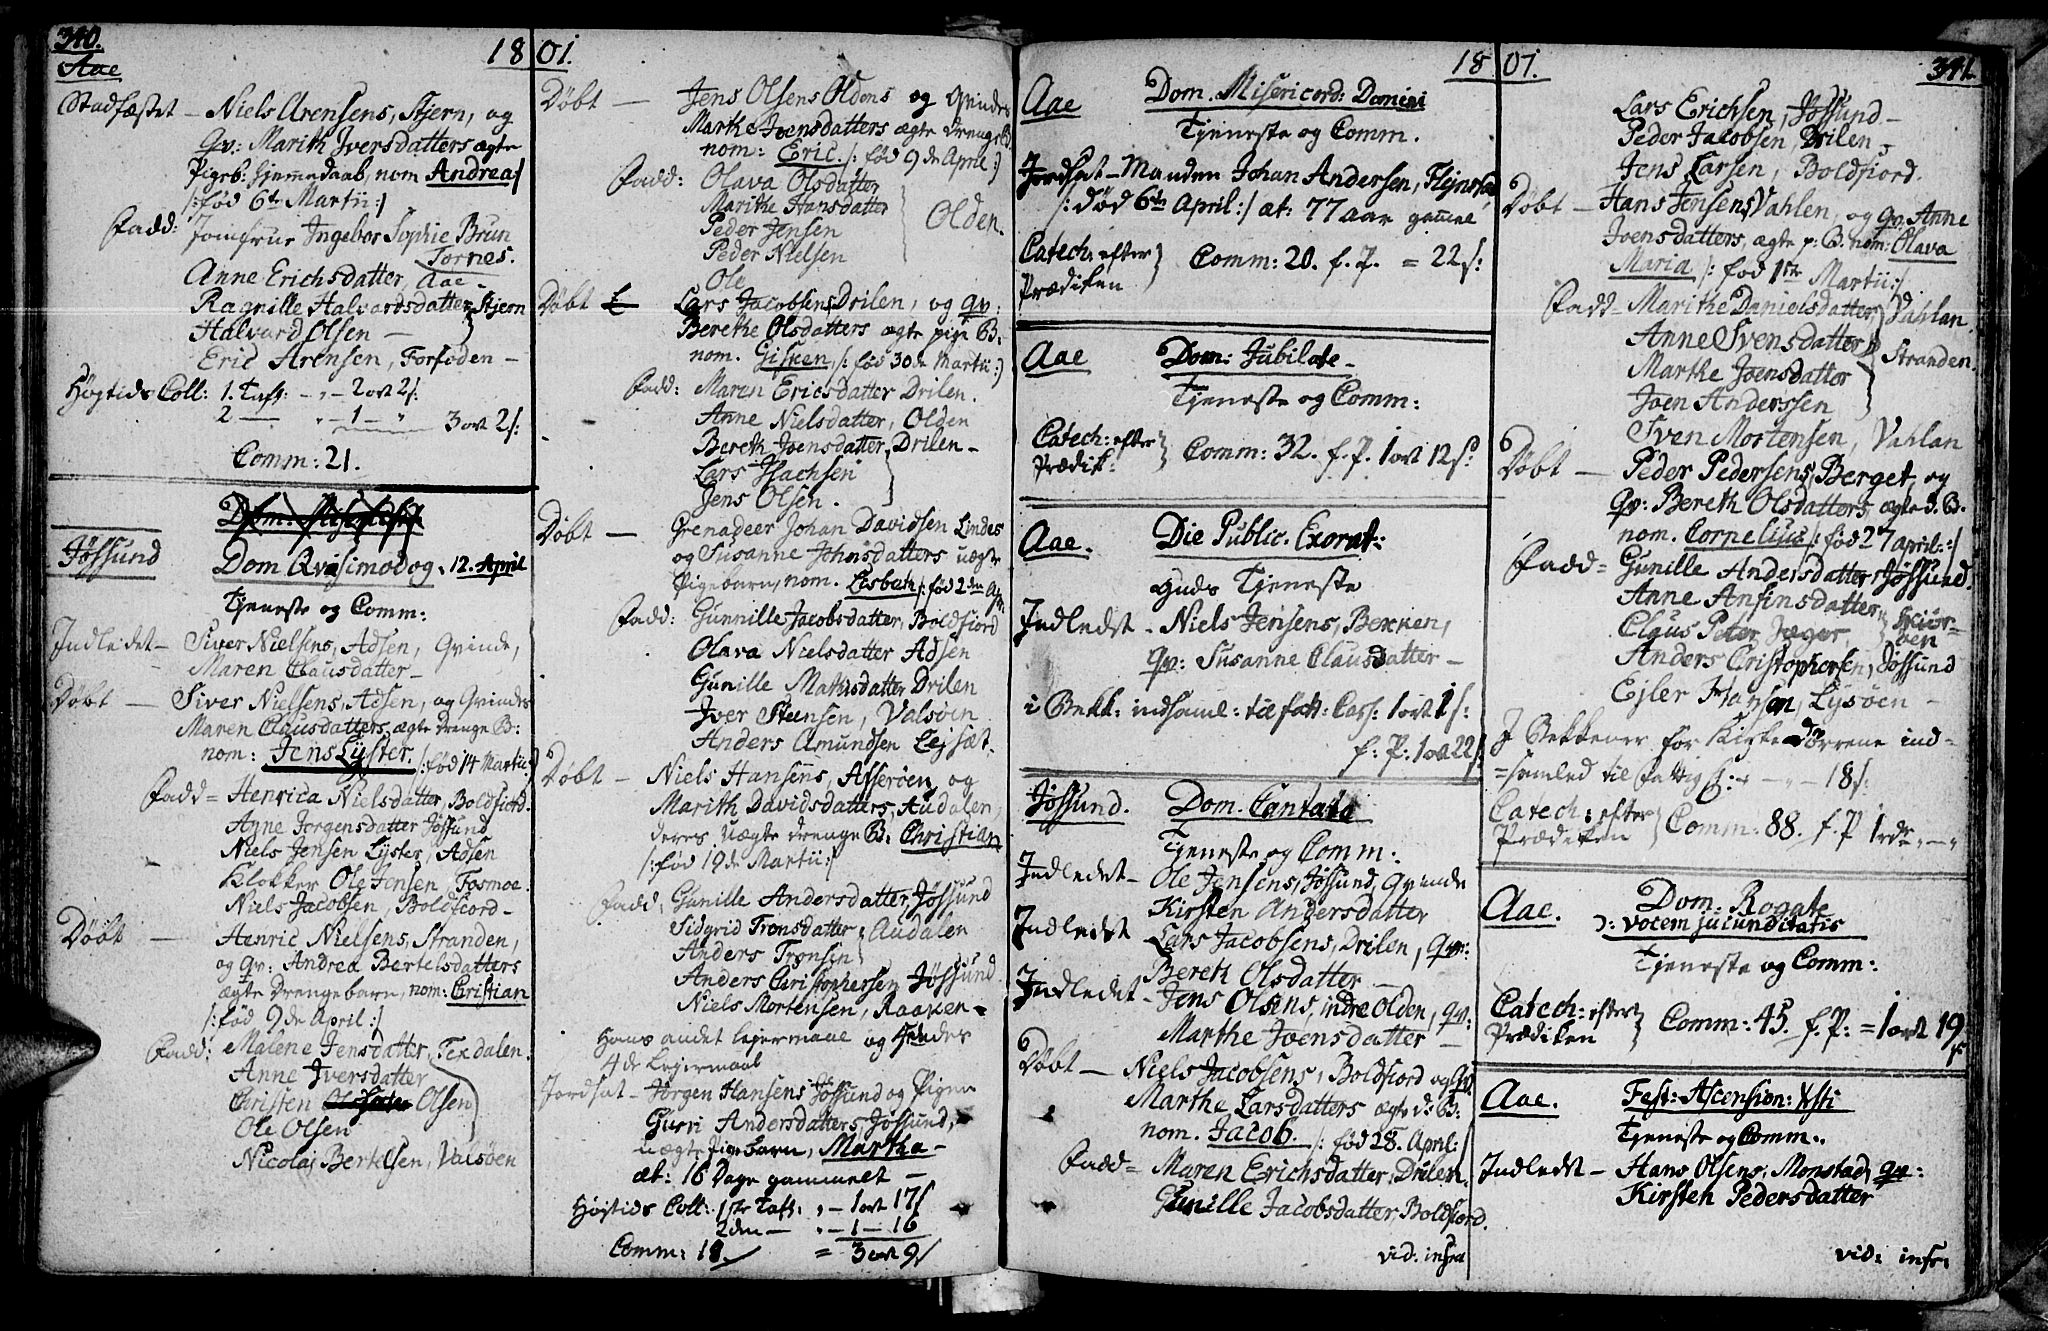 340.
Aae
1801.
Stadfæstet – Niels Arensens, Stjern, og
Qv: Marith Iversdatters ægte
Pigeb: hjemedaab, nom Andrea
/:fød 6te Martii:/
Fadd: Jomfrue Ingebor Sophie Brun
Tornes.
Anne Erichsdatter, Aae –
Ragnille Halvardsdatter Stjern
Halvard Olsen –
Eric Arensen, Forfoden –
Høytids Coll: 1. Tafl: – „ – 2 ort 2 s:
2 — „ – 1 – „ 3 ort 2 s:
Comm: 21.
Jøssund
Dom Qvasimodog. 12. April
Tjeneste og Comm:
Indledet – Siver Nielsens, Adsen, Qvinde,
Maren Clausdatter –
Døbt — Siver Nielsens, Adsen, og Qvindes
Maren Clausdatters ægte Drenge B:
nom: Jens Lyster. /:fød 14 Martii:/
Fadd = Henrica Nielsdatter, Boldfiord.
Agne Jørgensdatter Jøssund
Niels Jensen Lyster, Adsen
Klokker Ole Jensen, Fosmoe.
Niels Jacobsen, Boldfiord –
Døbt — Henric Nielsens, Stranden,
og Qv: Andrea Bertelsdatters
ægte Drengebarn, nom: Cristian
/:fød 9 de April:/
Fadd: Malene Jensdatter, Texdalen.
Anne Iversdatter
Christen Olsen
Ole Olsen
Nicolai Bertelsen, Valsøen
Døbt — Jens Olsens Oldens og Qvindes
Marthe Joensdatters ægte Drenge B.
nom: Eric. /: fød 9 de April:/
Fadd: Olava Olsdatter
Marithe Hansdatter
Peder Jensen
Peder Nielsen
Olden.
Ole
Døbt Lars Jacobsens Drilen, og qv:
Berethe Olsdatters ægte pige B.
nom. Gisken, /: fød 30 de Martii:/
Fadd: Maren Ericsdatter Drilen.
Anne Nielsdatter, Olden
Bereth Joensdatter, Drilen –
Lars Isachsen
Jens Olsen.
Døbt — Grenadeer Johan Davidsen Lindes
og Susanne Johnsdatters uægte
Pigebarn, nom. Lisbeth /:fød 2den Apr:
Fadd: Gunnille Jacobsdatter, Boldfiord
Olava Nielsdatter Adsen
Gunille Mathisdatter Drilen
Iver Steensen, Valsøen
Anders Amundsen Lejsæt.
Døbt — Niels Hansens, Asserøen, og
Marith Davidsdatters, Audalen,
deres uægte drenge B. Christian
/:fød 19 de Martii:/
Fadd: Gunille Andersdatter, Jøssund
Sidgrid Tronsdatter, Audalen
Anders Tronsen
Anders Christophersen Jøssund
Niels Mortensen, Raaken –
Hans andet lejermaal og Hendes
4 de Lejermaal
Jordsat – Jørgen Hansens Jøssund og Pigen
Gurri Andersdatters, Jøssund,
uægte Pigebarn, Martha –
æt: 16 Dage gammelt –
Høytids Coll: 1ste Tafl: „ – 1 ort 17 s
2den – „ – 1 – 16
Comm: 18. = 3 ort 9 s
1801.
341.
Aae
Dom. Misericord: Domini
Tjeneste og Comm.
Jordsat – Manden Johan Andersen,
/: død 6te April:/ æt: 77 aar gamel
Catech: efter Prædiken } Comm: 20. f. P. = 22 s:
Aae
Dom: Jubilate –
Tjeneste og Comm:
Catech: efter Prædik: } Comm: 32. f. P. 1 ort 12 s.
Aae.
Die Public. Exorat:
Guds Tjeneste
Indledet – Niels Jensens, Bekken,
qv: Susanne Clausdatter –
i Bekk: indsaml: til fatt: Cass: 1 ort 1 s:
f: P: 1 ort 22 s.
Jøssund.
Dom. Cantate
Tjeneste og Comm:
Indledet – Ole Jensens, Jøssund, Qvinde
Kirsten Andersdatter
Indledet Lars Jacobsens, Drilen, qv:
Bereth Olsdatter –
Indledet – Jens Olsens, indre Olden, qv:
Marthe Joensdatter –
Døbt — Niels Jacobsens, Boldfiord og Qv
Marthe Larsdatters ægte d: B:
nom. Jacob. /: fød 28. April:/
Fadd = Maren Erichsdatter, Drilen.
Gunille Jacobsdatter, Boldfiord.
vid: infra
Lars Erichsen, Jøssund –
Peder Jacobsen, Drilen,
Jens Larsen, Boldfiord.
Døbt — Hans Jensens Vahlen, og qv: Anne
Joensdatters, ægte p: B. nom: Olava
Maria /: fød 1ste Martii:/
Fadd – Marithe Danielsdatter, Vahlan.
Anne Svensdatter
Marthe Joensdatter
Joen Anderssen
Stranden.
Sven Mortensen, Vahlan
Døbt — Peder Pedersens, Berget, og
Qv: Bereth Olsdatters ægte D. B.
nom. Cornelius /: fød 27 april:/
Fadd = Gunille Andersdatter Jøssund
Anne Ansinsdatter
Claus Peter Jæger
Anders Cristophersen, Jøssund
Ejler Hansen, Lysøen –
I Bekkener for Kirke Dørrene ind=
=samled til fattig C: – „ – 18 s:
Catech: efter Prædiken } Comm: 88. f. P 1 rdr „ – „
Aae.
Dom: Rogate
ɔ: vocem jucunditatis
Tjeneste og Comm:
Catech: efter Prædiken } Comm: 45. f. P: = 1 ort 19 s
Aae.
Fest: Ascension: Xsti
Tjeneste og Comm:
Indledet – Hans Olsens, Monstad, qv:
Kirsten Pedersdatter
vid: infr: